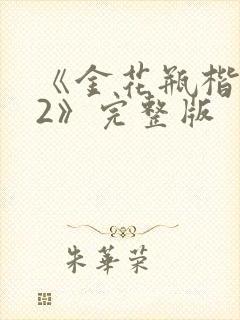 《金花瓶楷
2》完整版
朱华荣